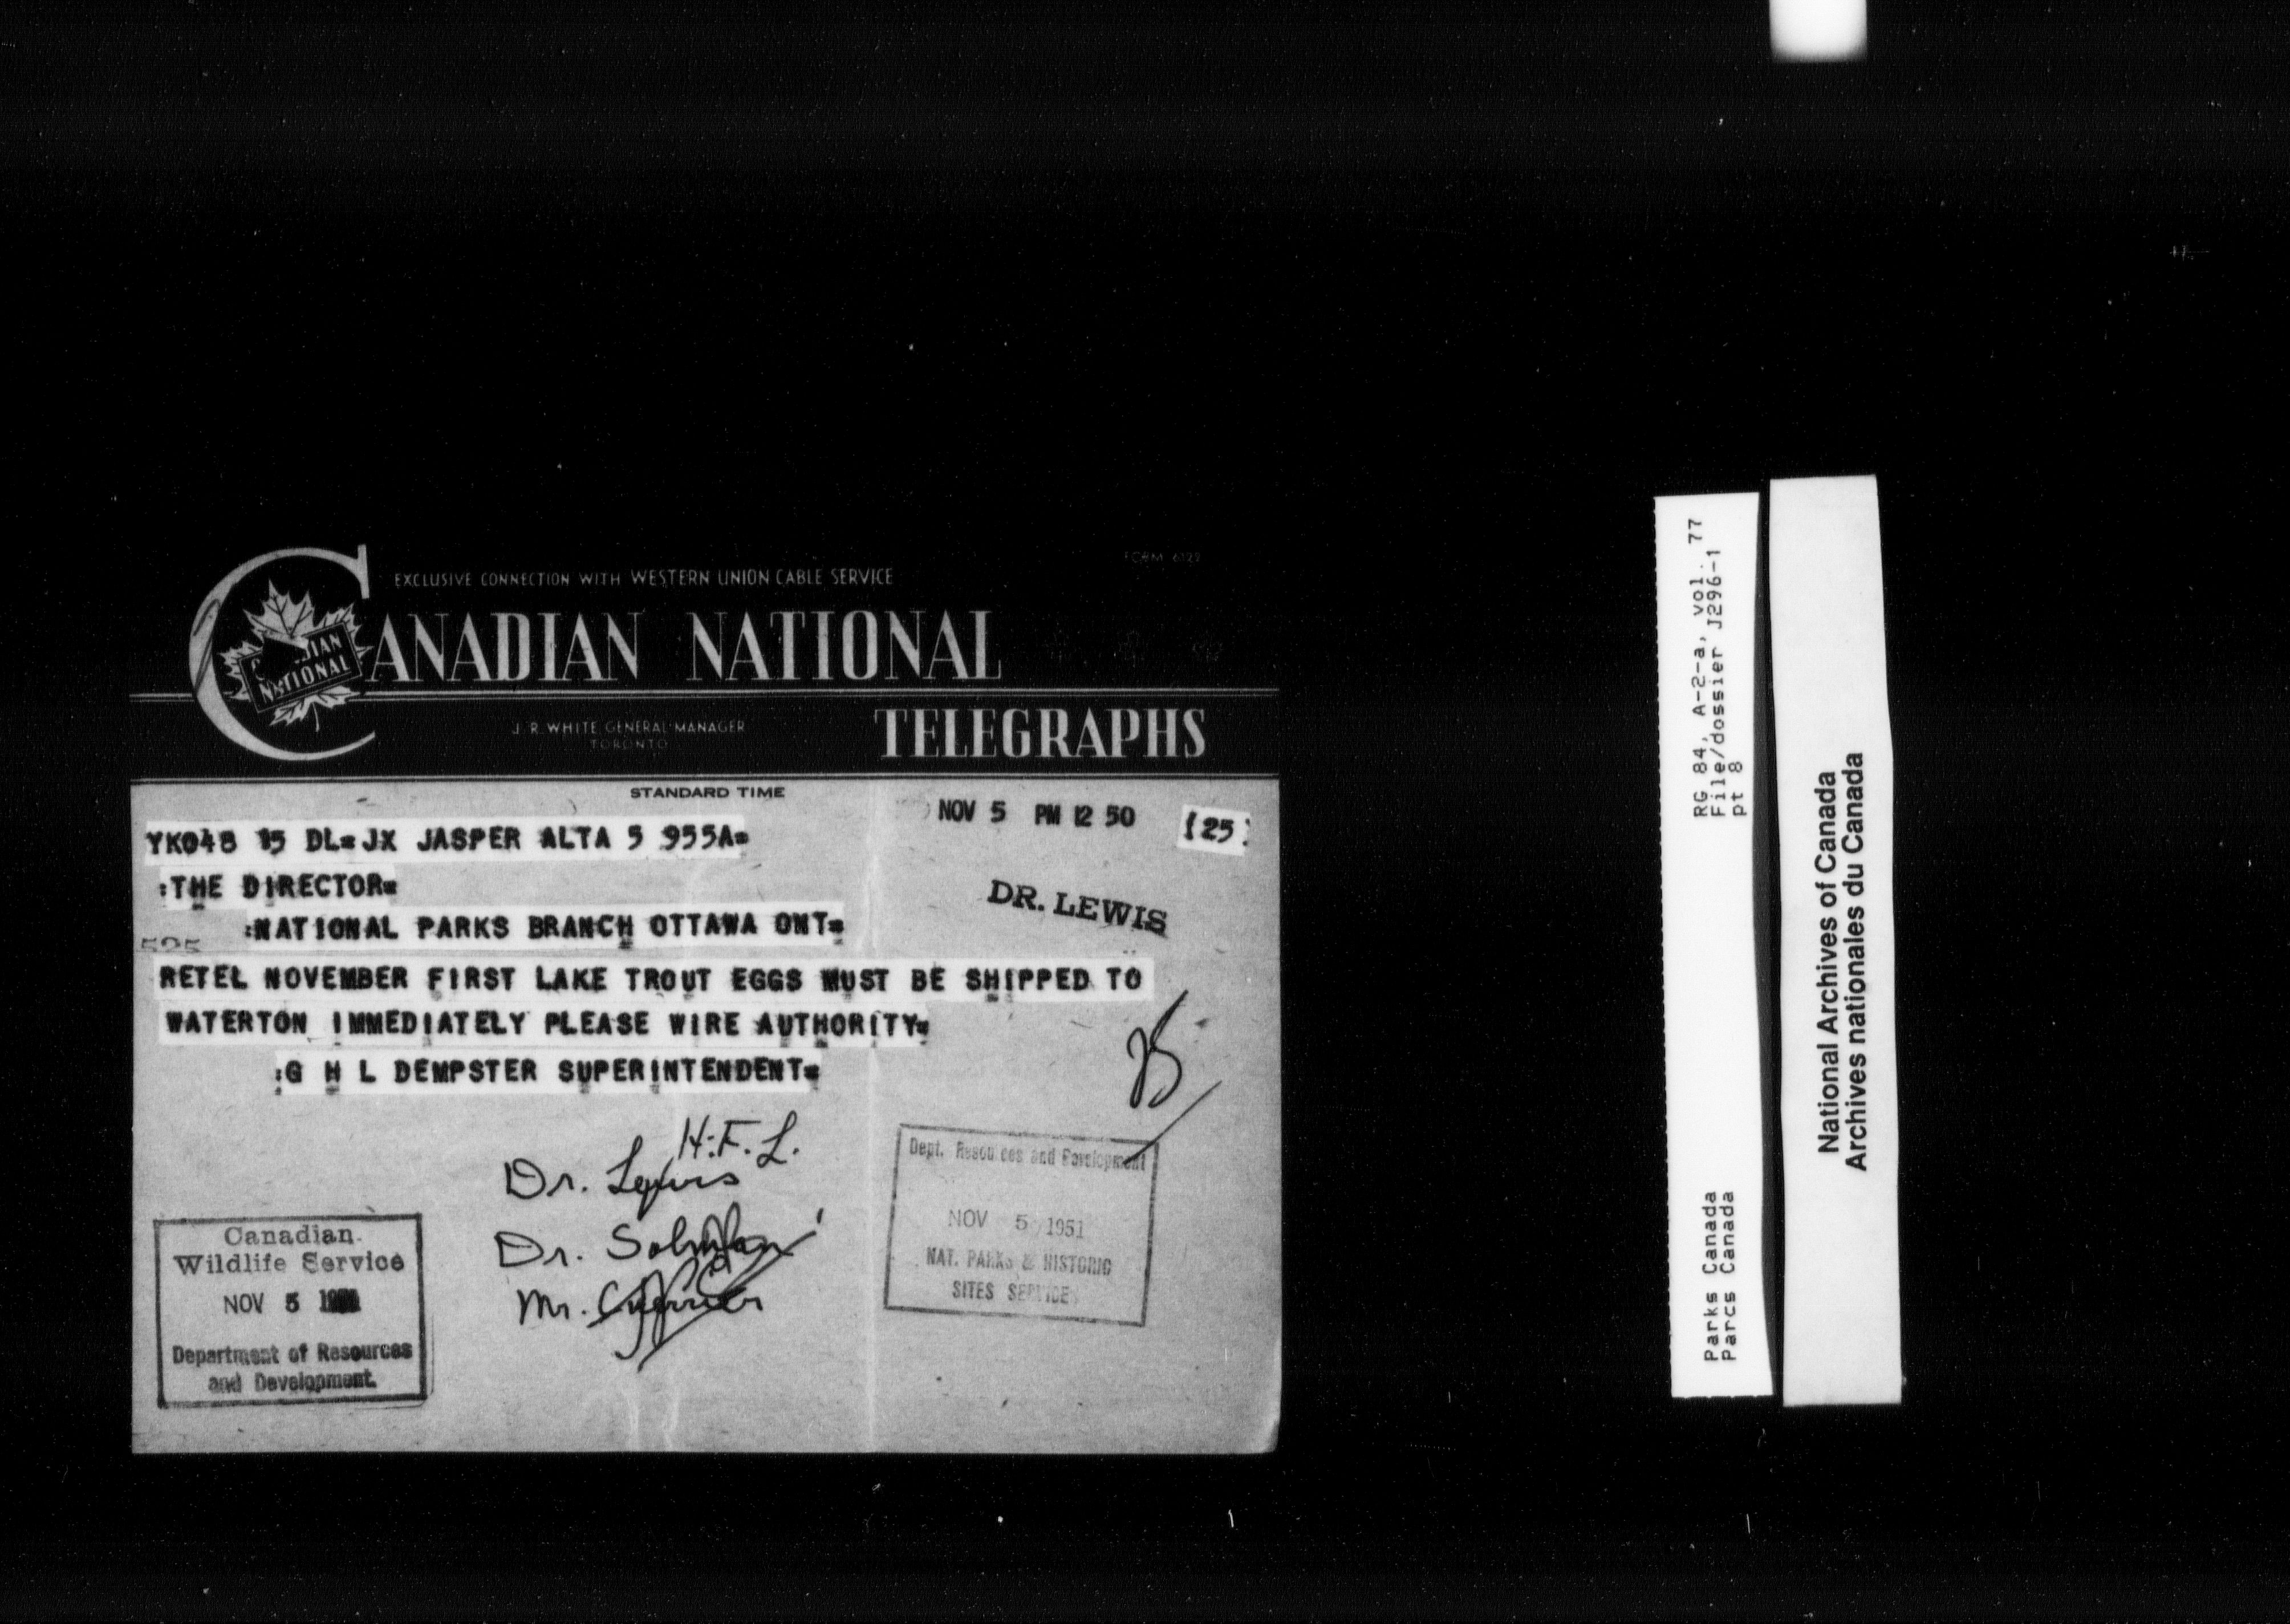 EXCLUSIVE CONNECTION WITH WESTERN UNION CABLE SERVICE
FORM 6122
CANADIAN NATIONAL
CANADIAN NATIONAL
TELEGRAPHS
J. R. WHITE GENERAL MANAGER
TORONTO
STANDARD TIME
NOV 5 PM 12 50
(25)
YK048 15 DL=JX JASPER ALTA 5 955A=
:THE DIRECTOR=
DR. LEWIS
:NATIONAL PARKS BRANCH OTTAWA ONT=
525
RETEL NOVEMBER FIRST LAKE TROUT EGGS MUST BE SHIPPED TO
WATERTON IMMEDIATELY PLEASE WIRE AUTHORITY=
:G H L DEMPSTER SUPERINTENDENT=
H.F.L.
Dr. Lewis
Dr. Solman
Mr.
Canadian
Wildlife Service
NOV 5
Department of Resources
and Development.
Dept. Resources and Development
NOV 5 1951
NAT. PARKS & HISTORIC
SITES SERVICE
RG 84, A-2-a, vol. 77
File/dossier J296-1
pt 8
Parks Canada
Parcs Canada
National Archives of Canada
Archives nationales du Canada